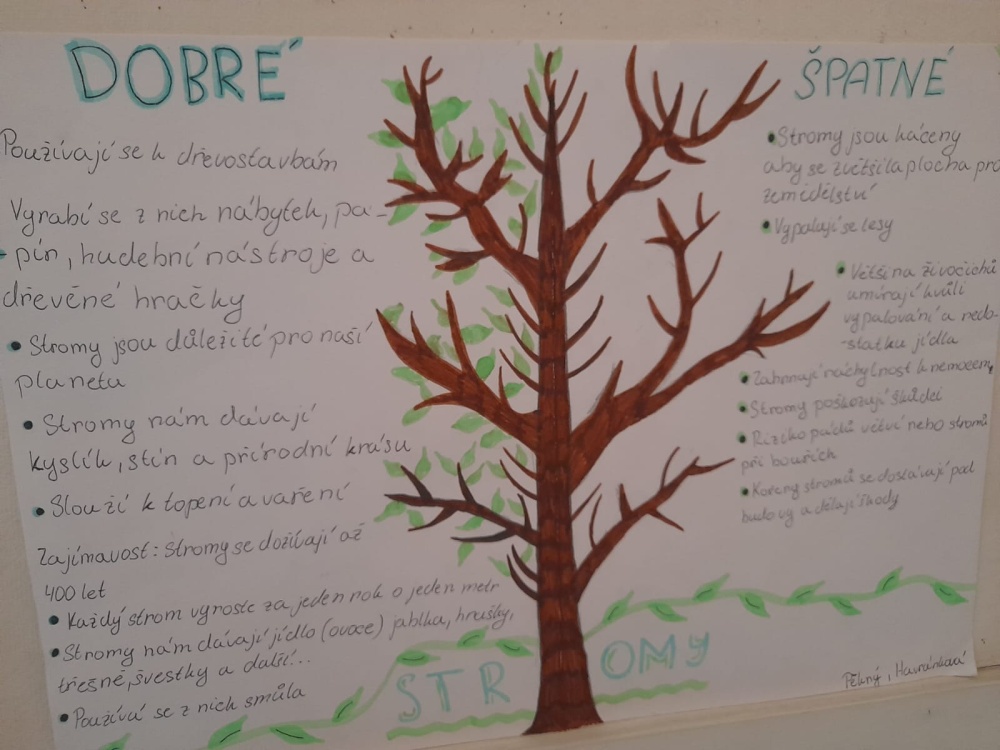 DOBRÉ
Používají se k dřevostavbám
Vyrabí se z nich nábytek, pa-
-pír, hudební nástroje a
dřevěné hračky
• Stromy jsou důležité pro naší
planetu
• Stromy nám dávají
kyslík, stín a přírodní krásu
• Slouží k topení a vaření
Zajímavost: Stromy se dožívají až
400 let
• Každý strom vyroste za jeden rok o jeden metr
• Stromy nám dávají jídlo (ovoce) jablka, hrušky,
třešně, švestky a další...
• Používá se z nich smůla
STROMY
ŠPATNÉ
• Stromy jsou káceny
aby se zvětšila plocha pro
zemědělství
• Vypalují se lesy
• Většina živočichů
umírají kvůli
vypalování a nedo-
-statku jídla
• Zahrnují náchylnost k nemocem
• Stromy poškozují škůdci
• Riziko pádů větví nebo stromů
při bouřích
• Kořeny stromů se dostávají pod
budovy a dělají škody
Pěkný, Havránková